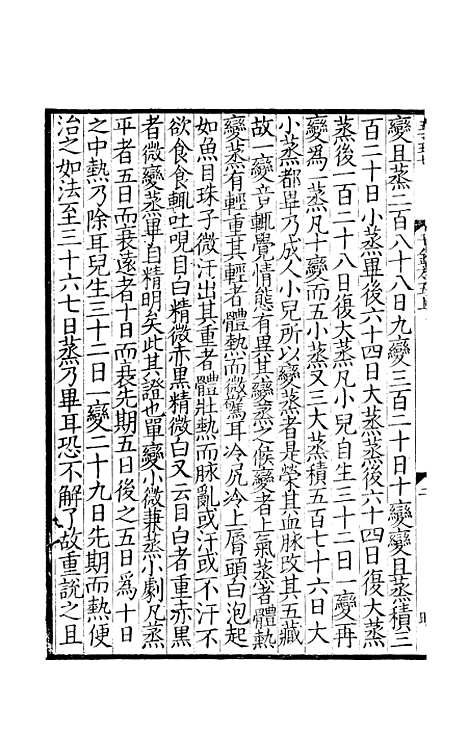 變且蒸二百八十八日九變三百二十日十變變且蒸積三
百二十日小蒸畢後六十四日大蒸蒸後六十四日復大蒸
蒸後一百二十八日復大蒸凡小兒自生三十二日一變再
變爲一蒸凡十變而五小蒸又三大蒸積五百七十六日大
小蒸都畢乃成人小兒所以變蒸者是榮其血脉改其五藏
故一變竟輒覺情態有異其變蒸之候變者上氣蒸者體熱
變蒸有輕重其輕者體熱而微驚耳冷尻冷上脣頭白泡起
如魚目珠子微汗出其重者體壯熱而脉亂或汗或不汗不
欲食食輒吐哯目白精微赤黑精微白又云目白者重赤黑
者微變蒸畢自精明矣此其證也單變小微兼蒸小劇凡蒸
平者五日而衰遠者十日而衰先期五日後之五日爲十日
之中熱乃除耳兒生三十二日一變二十九日先期而熱便
治之如法至三十六七日蒸乃畢耳恐不解了故重說之且